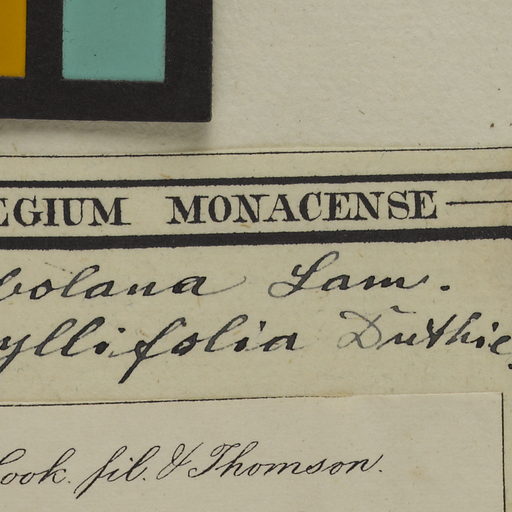 EGIUM MONACENSE
bolana Lam.
yllifolia Duthie
Hook. fil. & Thomson.